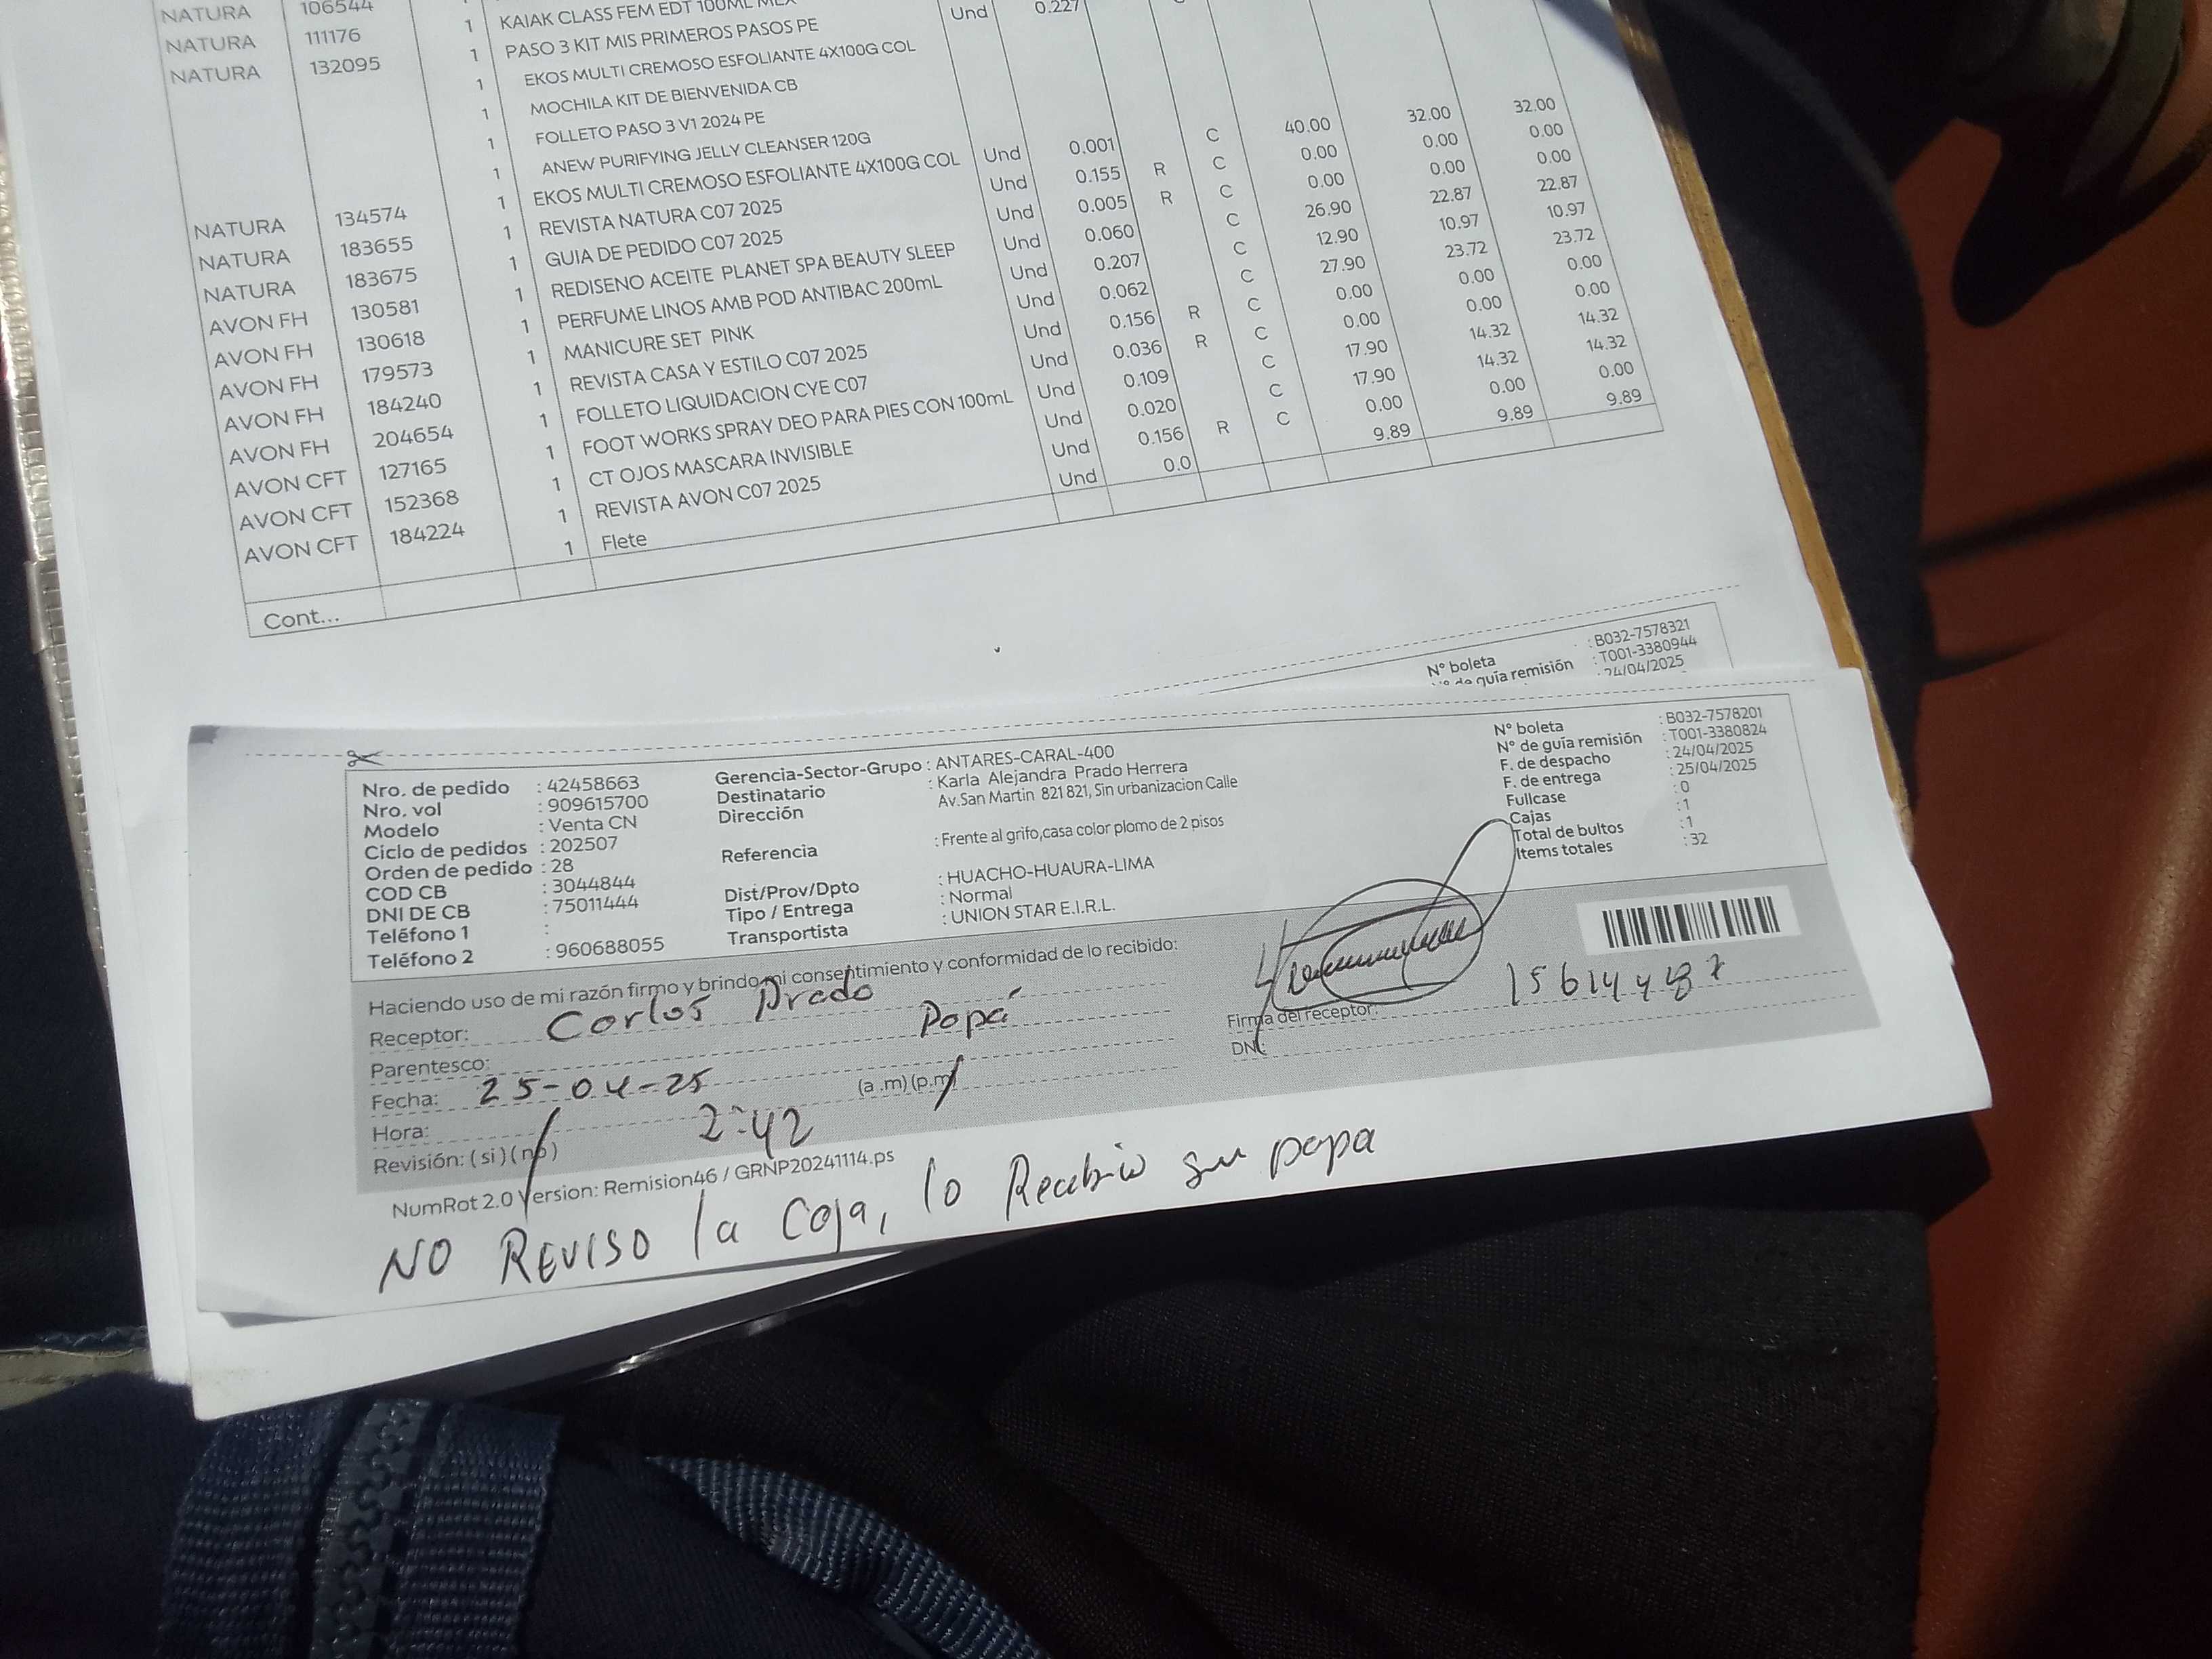 NATURA 106544 1 KAIAK CLASS FEM EDT 100ML MEX Und 0.227
NATURA 111176 1 PASO 3 KIT MIS PRIMEROS PASOS PE
NATURA 132095 1 EKOS MULTI CREMOSO ESFOLIANTE 4X100G COL
1 MOCHILA KIT DE BIENVENIDA CB
1 FOLLETO PASO 3 V1 2024 PE
1 ANEW PURIFYING JELLY CLEANSER 120G
NATURA 134574 1 EKOS MULTI CREMOSO ESFOLIANTE 4X100G COL Und 0.001 C 40.00 32.00 32.00
NATURA 183655 1 REVISTA NATURA C07 2025 Und 0.155 R C 0.00 0.00 0.00
NATURA 183675 1 GUIA DE PEDIDO C07 2025 Und 0.005 R C 0.00 0.00 0.00
AVON FH 130581 1 REDISENO ACEITE PLANET SPA BEAUTY SLEEP Und 0.060 C 26.90 22.87 22.87
AVON FH 130618 1 PERFUME LINOS AMB POD ANTIBAC 200mL Und 0.207 C 12.90 10.97 10.97
AVON FH 179573 1 MANICURE SET PINK Und 0.062 C 27.90 23.72 23.72
AVON FH 184240 1 REVISTA CASA Y ESTILO C07 2025 Und 0.156 R C 0.00 0.00 0.00
AVON FH 204654 1 FOLLETO LIQUIDACION CYE C07 Und 0.036 R C 0.00 0.00 0.00
AVON CFT 127165 1 FOOT WORKS SPRAY DEO PARA PIES CON 100mL Und 0.109 C 17.90 14.32 14.32
AVON CFT 152368 1 CT OJOS MASCARA INVISIBLE Und 0.020 C 17.90 14.32 14.32
AVON CFT 184224 1 REVISTA AVON C07 2025 Und 0.156 R C 0.00 0.00 0.00
1 Flete Und 0.0 9.89 9.89 9.89
Cont...
N° boleta : B032-7578321
N° de guía remisión : T001-3380944
: 24/04/2025
Nro. de pedido : 42458663
Nro. vol : 909615700
Modelo : Venta CN
Ciclo de pedidos : 202507
Orden de pedido : 28
COD CB : 3044844
DNI DE CB : 75011444
Teléfono 1 :
Teléfono 2 : 960688055
Gerencia-Sector-Grupo : ANTARES-CARAL-400
Destinatario : Karla Alejandra Prado Herrera
Dirección Av.San Martin 821 821, Sin urbanizacion Calle
Referencia : Frente al grifo,casa color plomo de 2 pisos
Dist/Prov/Dpto : HUACHO-HUAURA-LIMA
Tipo / Entrega : Normal
Transportista : UNION STAR E.I.R.L.
N° boleta : B032-7578201
N° de guía remisión : T001-3380824
F. de despacho : 24/04/2025
F. de entrega : 25/04/2025
Fullcase : 0
Cajas : 1
Total de bultos : 1
Items totales : 32
Haciendo uso de mi razón firmo y brindo mi consentimiento y conformidad de lo recibido:
Receptor: Carlos Prado
Parentesco: Papá
Fecha: 25-04-25
Hora: 2:42 (a .m) (p.m)
Revisión: ( si ) ( no )
Firma del receptor:
DNI:
NumRot 2.0 Version: Remision46 / GRNP20241114.ps
NO REVISO la Caja, lo Recibio su papa